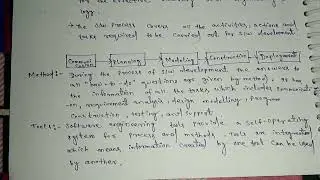 for the effective
logy
→ the s/w process covers all the activities, actions and
task required to be carried out for s/w develoment
Communi cation → Planning → Modeling → Construction → Deployment
Method:- During the process of s/w development the answers to
all "how-to-do" questions are given by method, it has
the information of all the tasks which includes communicati
-on, requirement analysis, design modelling, program
construction, testing, and support
Tools:- Software engineering tools provide a self-operating
system for process and methods. Tools are integration
which means information created by one tool can be used
by another,